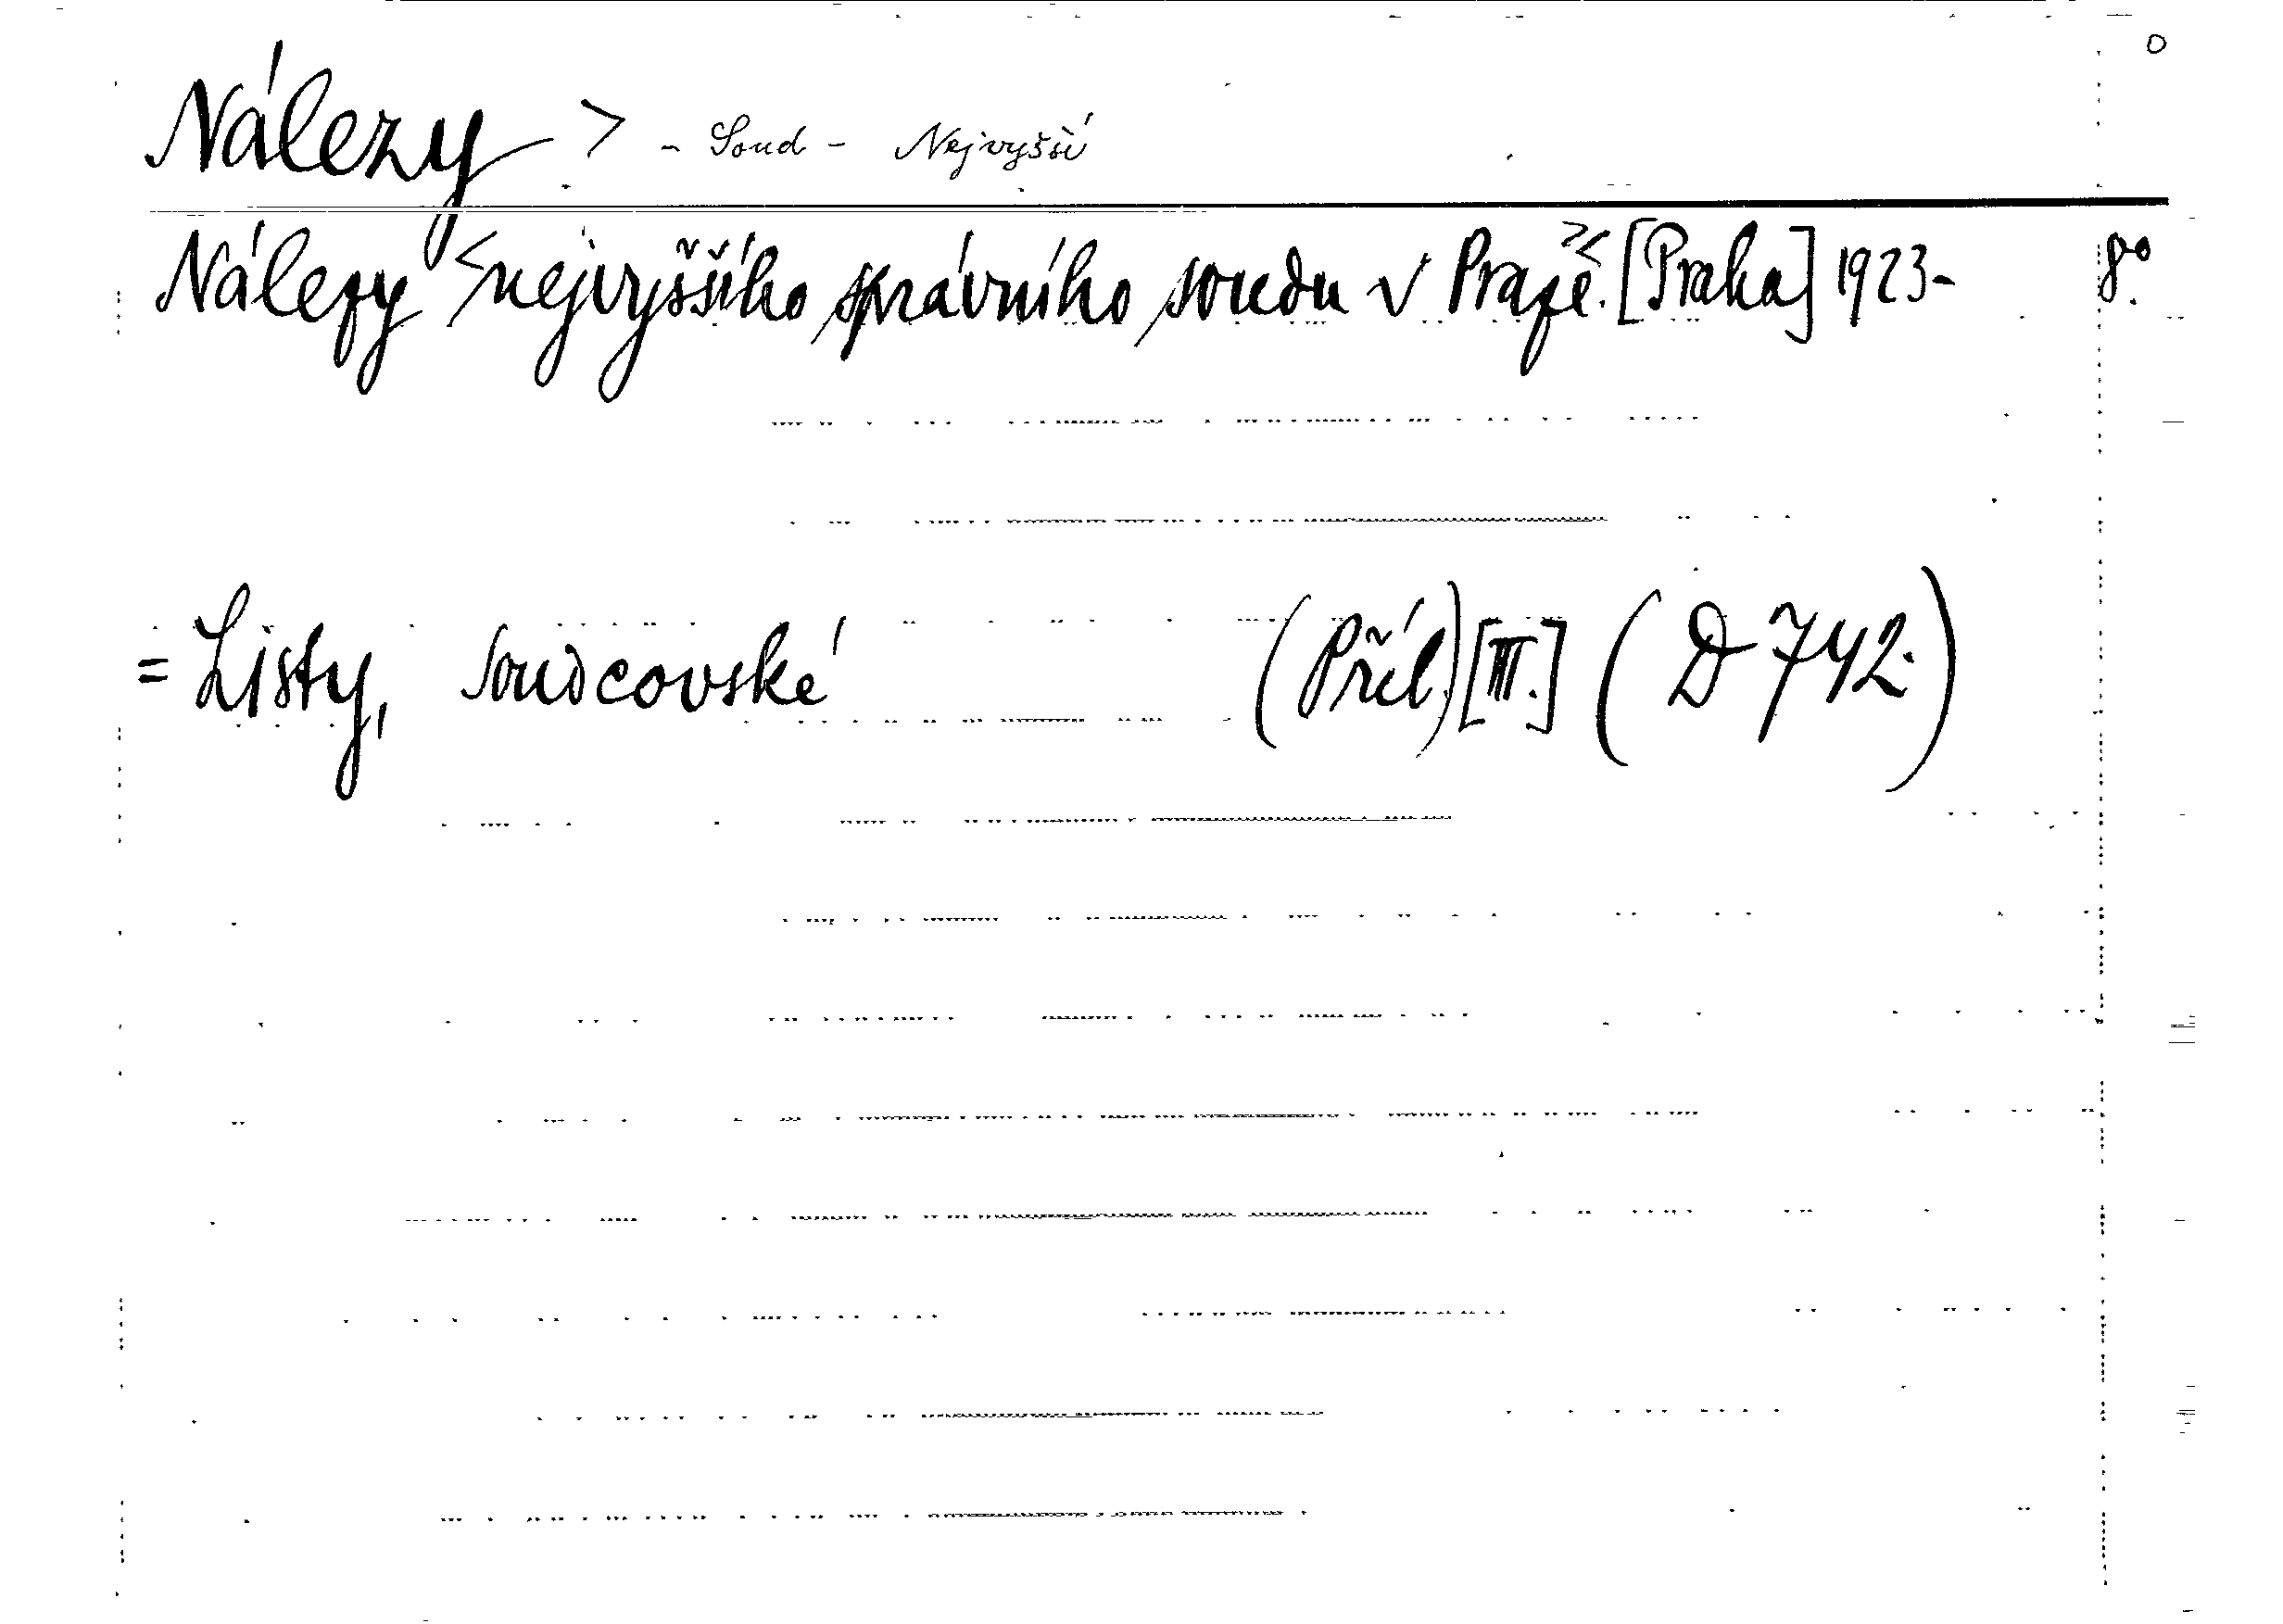 Nálezy > - Soud - Nejvyšší
Nálezy <nejvyššího správního soudu v Praze>. [Praha] 1923- 8°.
= Listy, soudcovské (Příl.) [III.] (D 742.)